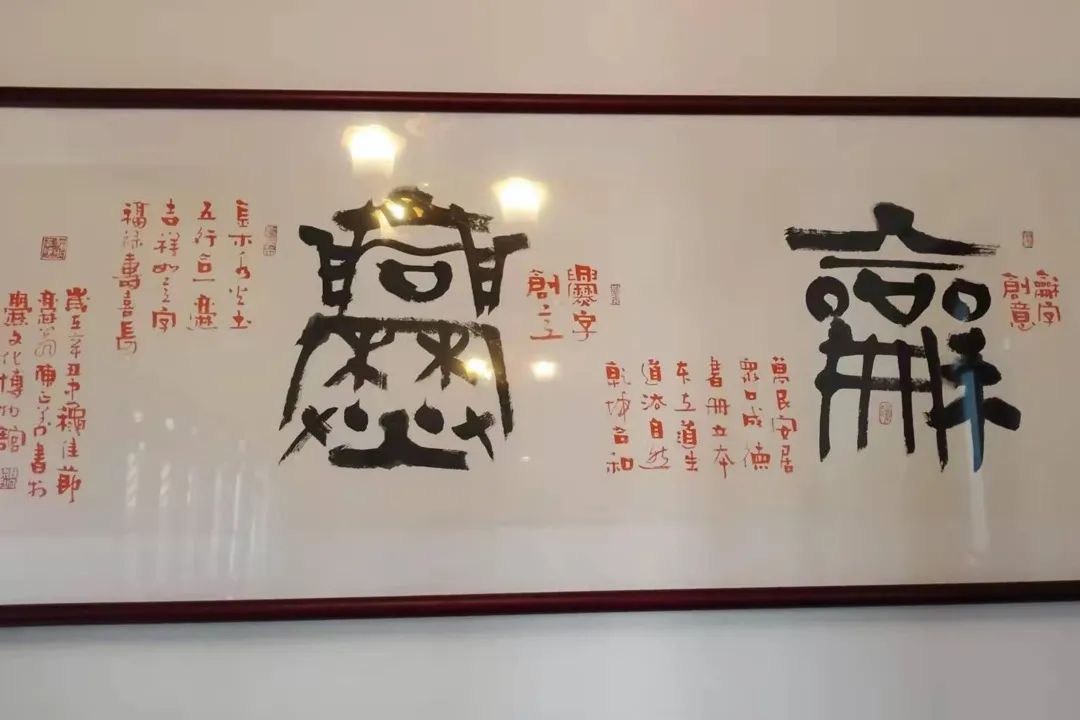 龢字
創意
萬民安居
眾口成德
書冊立本
立道生
道法自然
乾坤合和
爨字
創立
金木水火土
五行合一爨
吉祥如意字
福祿壽喜長
歲在辛丑中穐佳節
爨翁陳正義書於
爨文化博物館